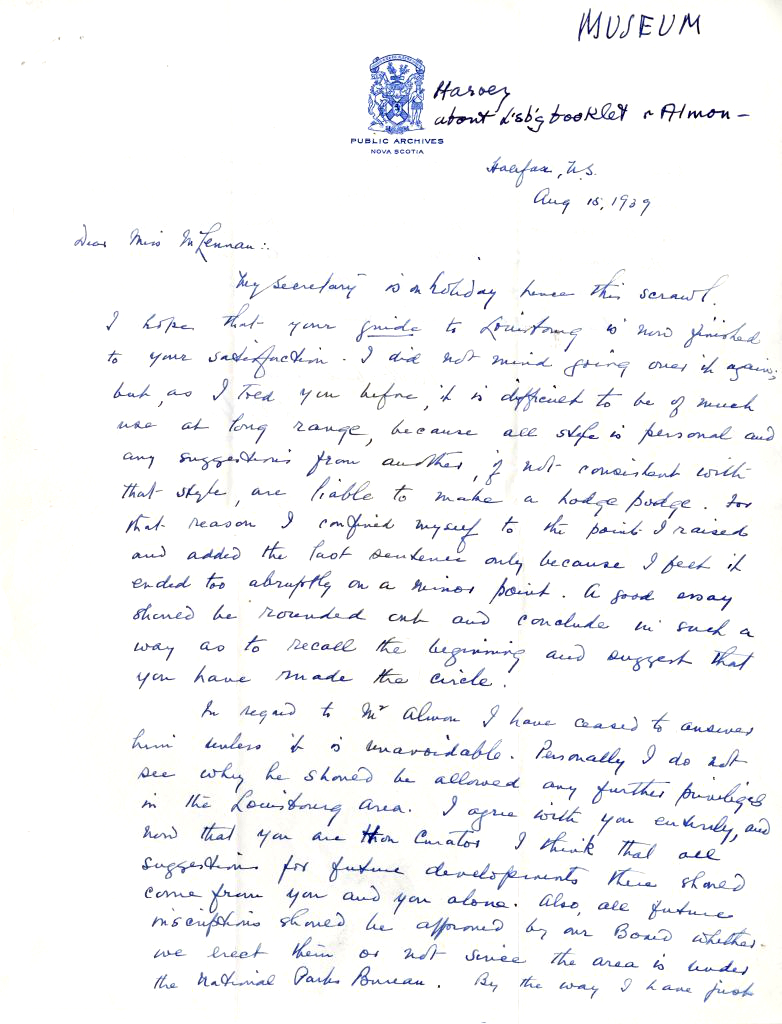 MUSEUM
Harvey
about L'sb'g booklet & Almon -
PUBLIC ARCHIVES
NOVA SCOTIA
Halifax, N.S.
Aug 15, 1939
Dear Miss McLennan:
My secretary is on holiday hence this scrawl.
I hope that your guide to Louisbourg is now finished
to your satisfaction. I did not mind going over it again;
but, as I told you before, it is difficult to be of much
use at long range, because all style is personal and
any suggestions from another, if not consistent with
that style, are liable to make a hodge podge. For
that reason I confined myself to the points I raised
and added the last sentence only because I felt it
ended too abruptly on a minor point. A good essay
should be rounded out and conclude in such a
way as to recall the beginning and suggest that
you have made the circle.
In regard to Mr Almon I have ceased to answer
him unless it is unavoidable. Personally I do not
see why he should be allowed any further privileges
in the Louisbourg area. I agree with you entirely, and
now that you are Hon Curator I think that all
suggestions for future developments there should
come from you and you alone. Also, all future
inscriptions should be approved by our Board whether
we erect them or not since the area is under
the National Parks Bureau. By the way I have just